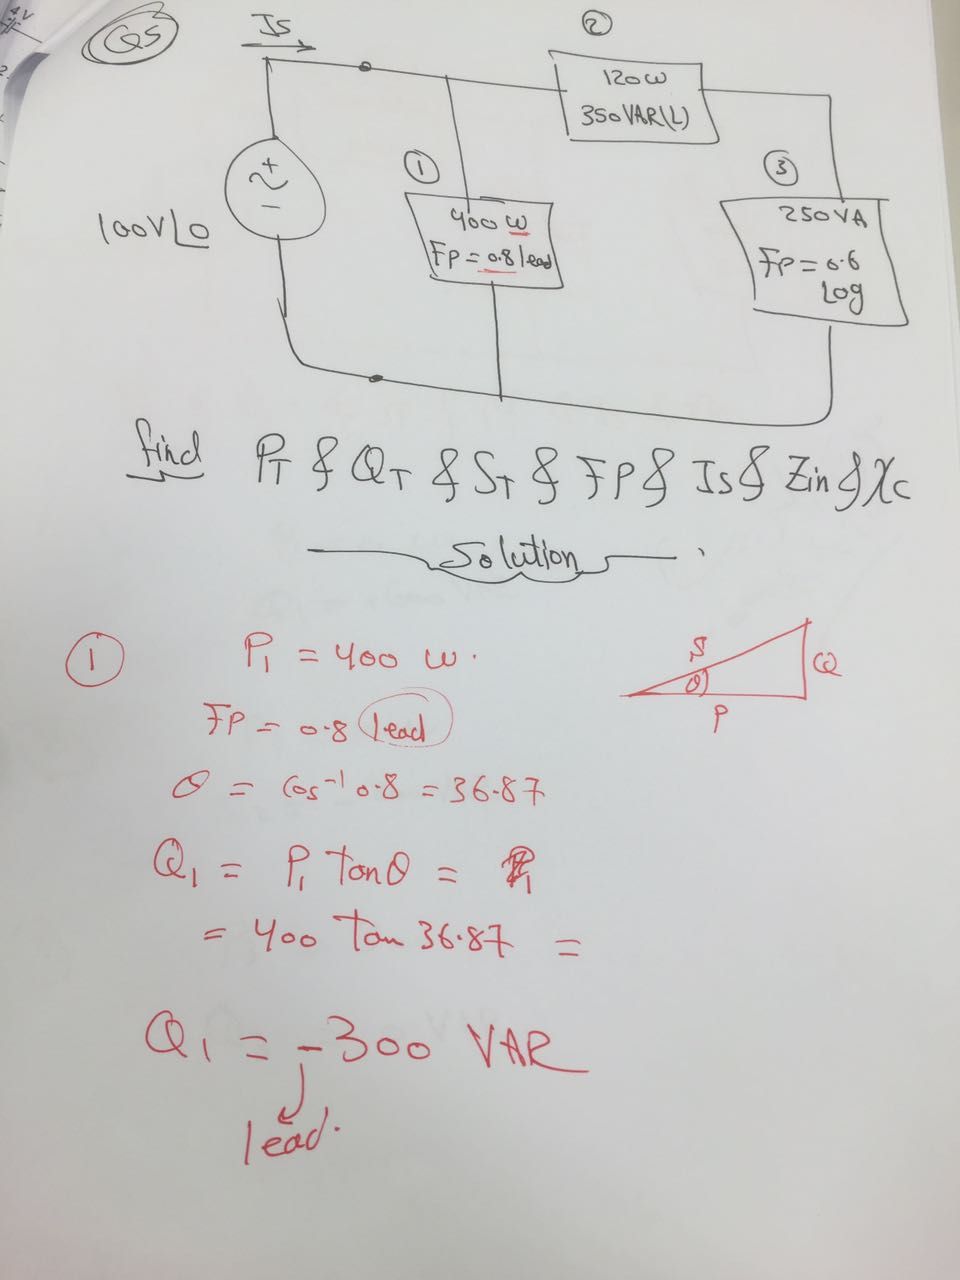 Q5
Is
②
120w
350VAR(L)
①
③
400w
Fp = 0.8 lead
250VA
Fp = 0.6
Log
100V∠0
+
−
find PT & QT & ST & FP & Is & Zin & Xc
Solution
① P₁ = 400 w.
Fp = 0.8 lead
θ = Cos⁻¹ 0.8 = 36.87
S
Q
θ
P
Q₁ = P₁ tanθ =
= 400 Tan 36.87 =
Q₁ = -300 VAR
lead.